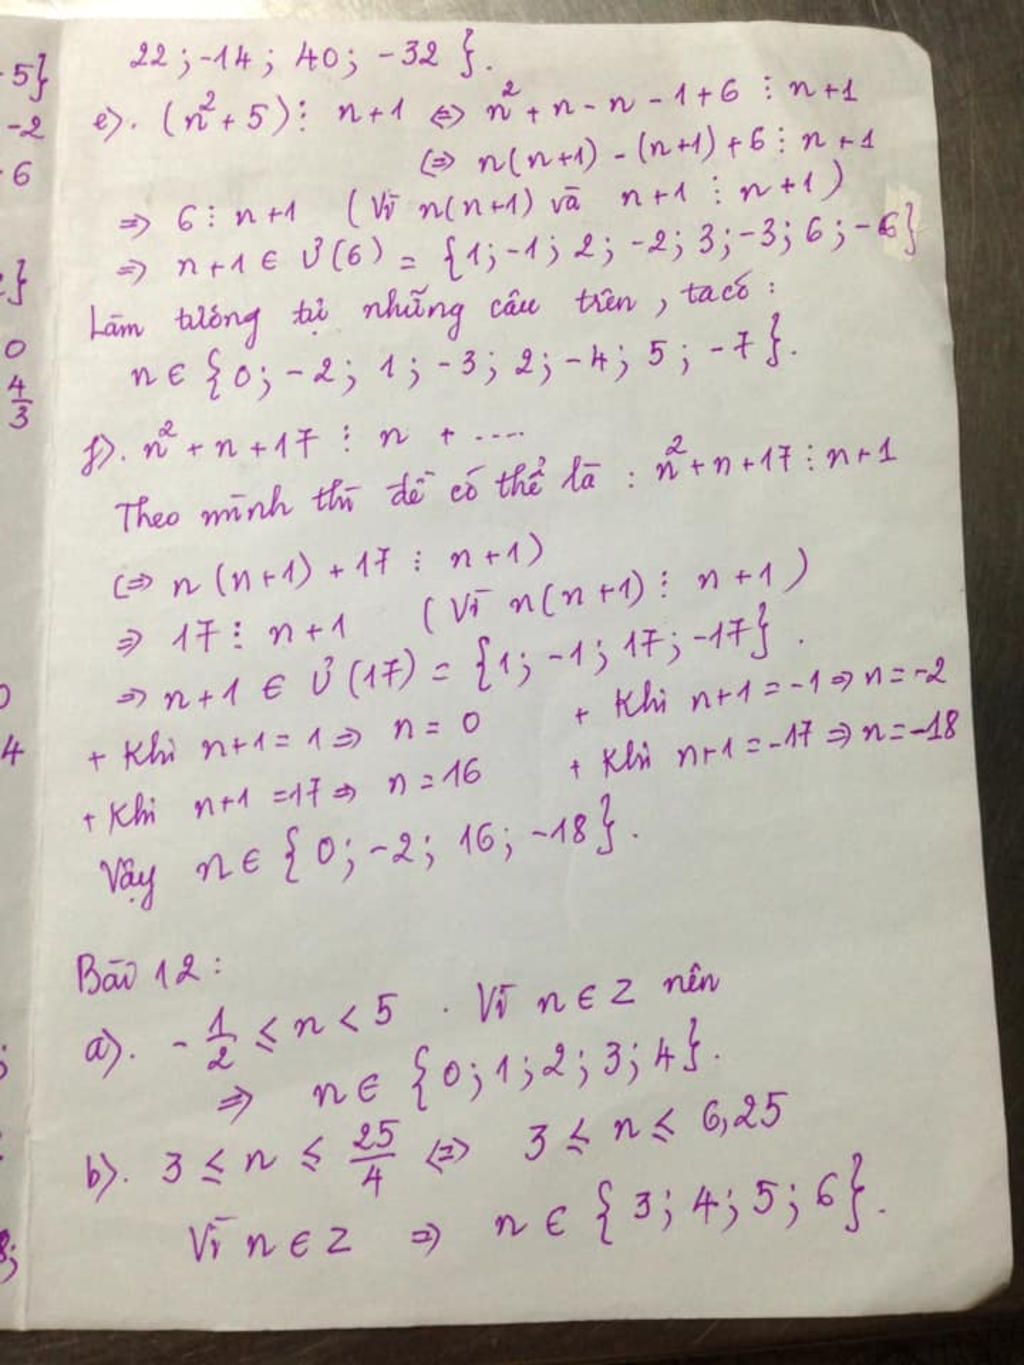 5}
-2
6
}
0
4/3
4
22 ; -14 ; 40 ; -32 }.
e). (n² + 5) ⋮ n+1 ⇔ n² + n - n - 1 + 6 ⋮ n+1
⇔ n(n+1) - (n+1) + 6 ⋮ n+1
⇒ 6 ⋮ n+1 (Vì n(n+1) và n+1 ⋮ n+1)
⇒ n+1 ∈ Ư(6) = {1; -1; 2; -2; 3; -3; 6; -6}
Làm tương tự những câu trên, ta có :
n ∈ {0; -2; 1; -3; 2; -4; 5; -7}.
f). n² + n + 17 ⋮ n + ....
Theo mình thì đề có thể là : n² + n + 17 ⋮ n+1
⇔ n(n+1) + 17 ⋮ n+1)
⇒ 17 ⋮ n+1 (Vì n(n+1) ⋮ n+1)
⇒ n+1 ∈ Ư(17) = {1; -1; 17; -17}.
+ Khi n+1 = 1 ⇒ n = 0 + Khi n+1 = -1 ⇒ n = -2
+ Khi n+1 = 17 ⇒ n = 16 + Khi n+1 = -17 ⇒ n = -18
Vậy n ∈ {0; -2; 16; -18}.
Bài 12 :
a). -1/2 ≤ n < 5 . Vì n ∈ Z nên
⇒ n ∈ {0; 1; 2; 3; 4}.
b). 3 ≤ n ≤ 25/4 ⇔ 3 ≤ n ≤ 6,25
Vì n ∈ Z ⇒ n ∈ {3; 4; 5; 6}.